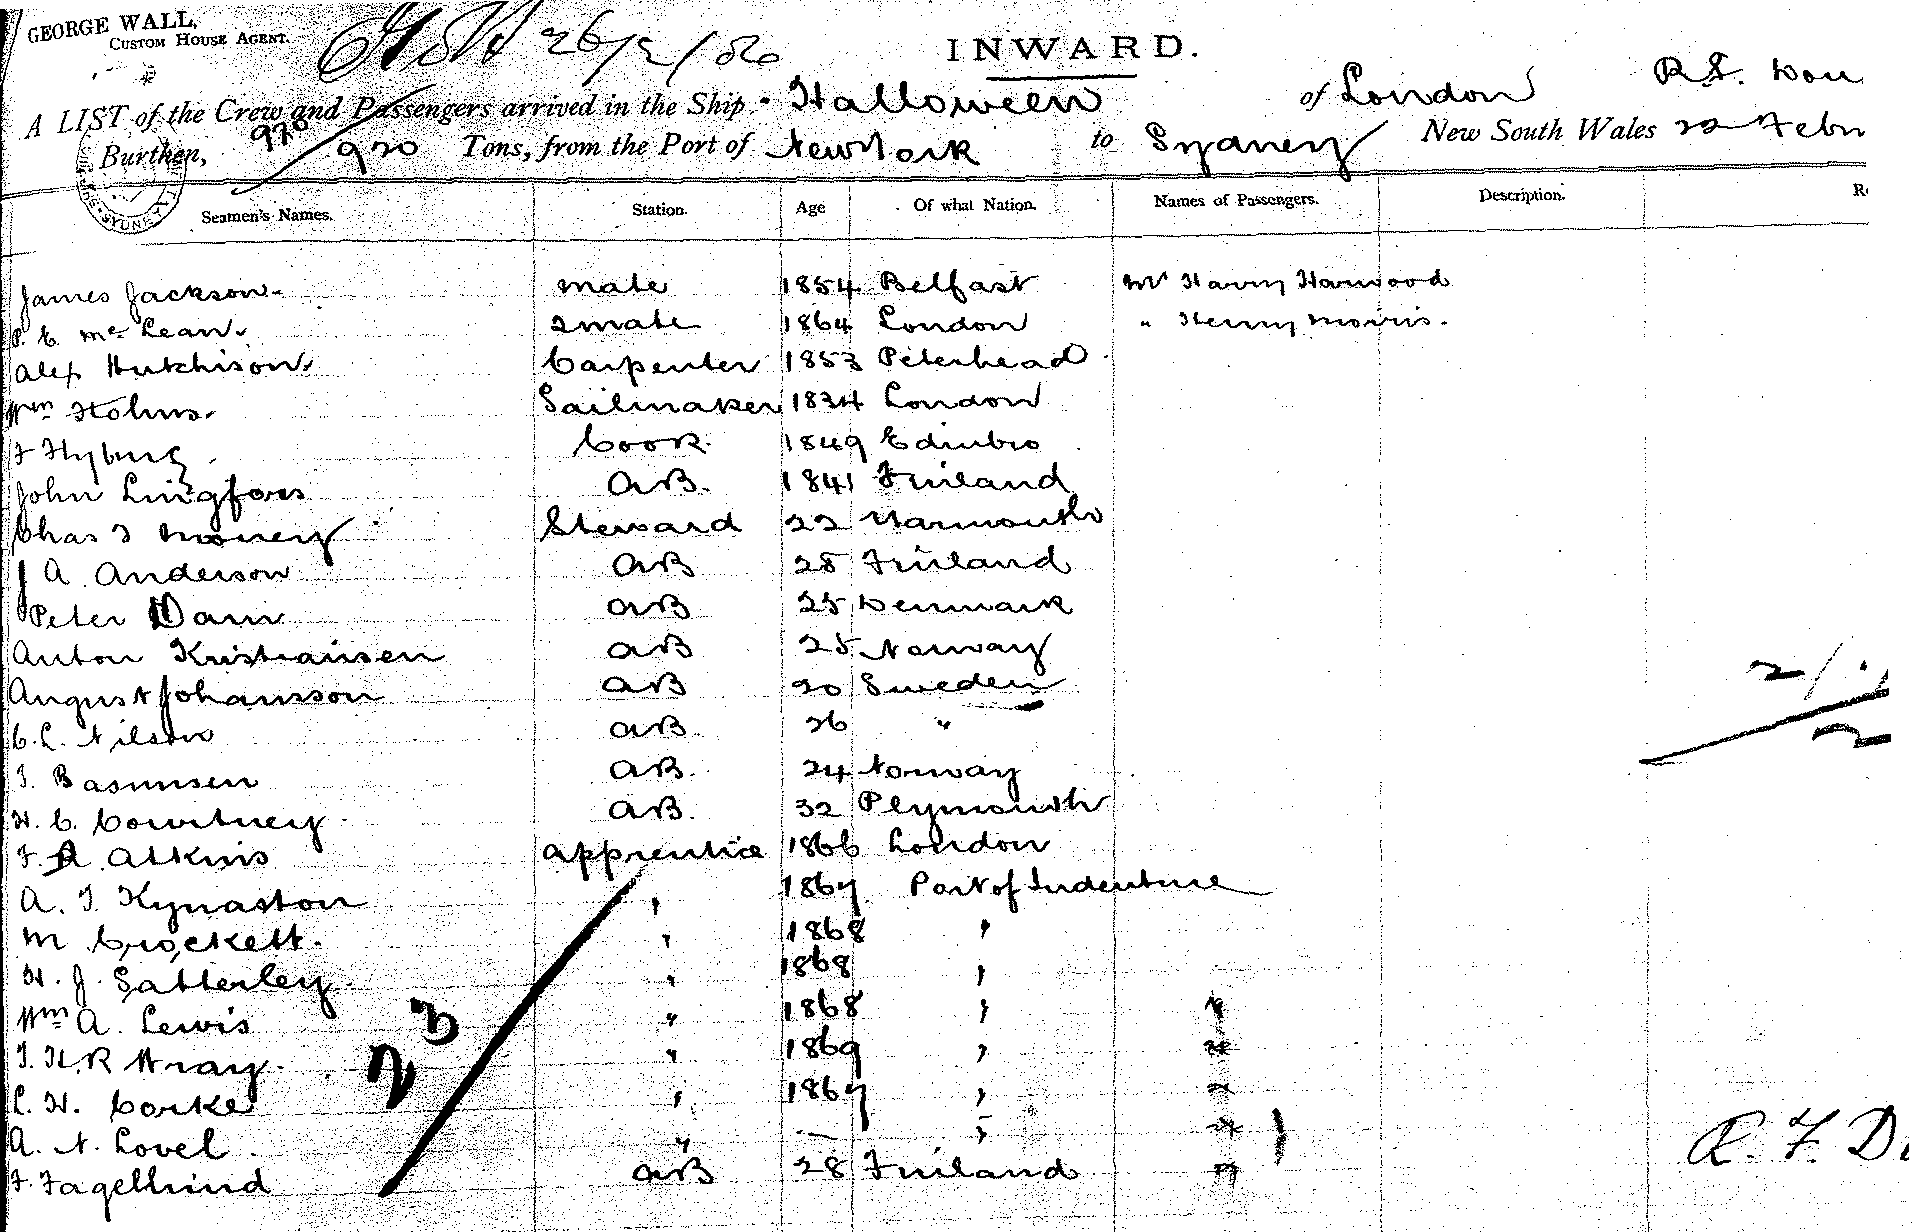 GEORGE WALL,
CUSTOM HOUSE AGENT.
26/2/86
INWARD.
A LIST of the Crew and Passengers arrived in the Ship Halloween of London R. F.
Burthen, 970/920 Tons, from the Port of New York to Sydney New South Wales 22 Febr
SYDNEY
Seamen's Names. Station. Age Of what Nation. Names of Passengers. Description.
James Jackson. Mate 1854 Belfast Mr Harry Harwood
P. C. McLean. 2 Mate 1864 London " Henry Morris.
Alex Hutchison. Carpenter 1853 Peterhead
Wm Holms. Sailmaker 1834 London
F Hyburg. Cook. 1849 Edinbro
John Lingfors AB. 1841 Finland
Chas T Money Steward 22 Yarmouth
J A Anderson AB 28 Finland
Peter Dam AB 25 Denmark
Anton Kristiansen AB 25 Norway
August Johansson AB 20 Sweden
C. L. Nilson AB. 26 "
T. Basmusen AB. 24 Norway
H. C. Courtney AB. 32 Plymouth
F. A Atkins Apprentice 1866 London
A. T. Kynaston " 1867 Port of Indenture
M Crockett. " 1868 "
H. J. Satterley " 1868 "
Wm A. Lewis " 1868 "
T. H. R Wray. " 1869 "
L. H. Corke " 1867 "
A. N. Lovel " — "
F. Fagelhind AB 28 Finland
23
R. F. D